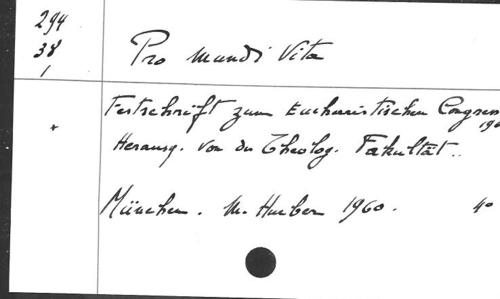 294
38
1
Pro Mundi Vita
Festschrift zum Eucharistischen Congress
1960
Herausg. von der Theolog. Fakultät..
München. M. Hueber 1960. 4°